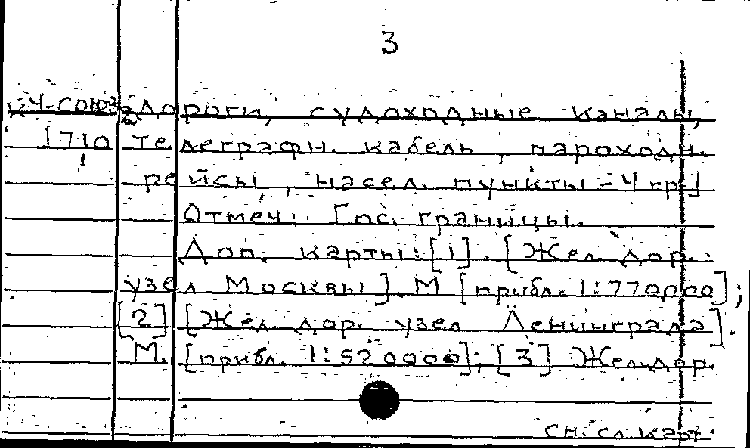 3
Ч-союз дороги, судоходные каналы,
1710 телеграфн. кабель, пароходн.
рейсы, насел. пункты - 4 кр.]
Отмеч: Гос. границы.
Доп. карты: [1]. [Жел. дор.
узел Москвы]. М [прибл. 1:770000];
[2] [Жел. дор. узел Ленинграда].
М. [прибл. 1:520000]; [3] Жел.дор.
см. сл. карт.